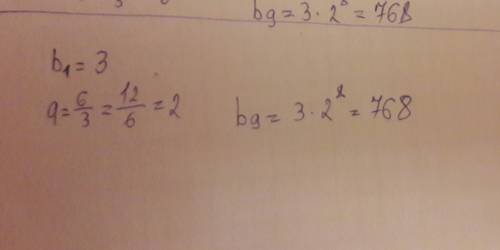 b9 = 3 · 2⁸ = 768
b₁ = 3
q = 6/3 = 12/6 = 2
b9 = 3 · 2² = 768